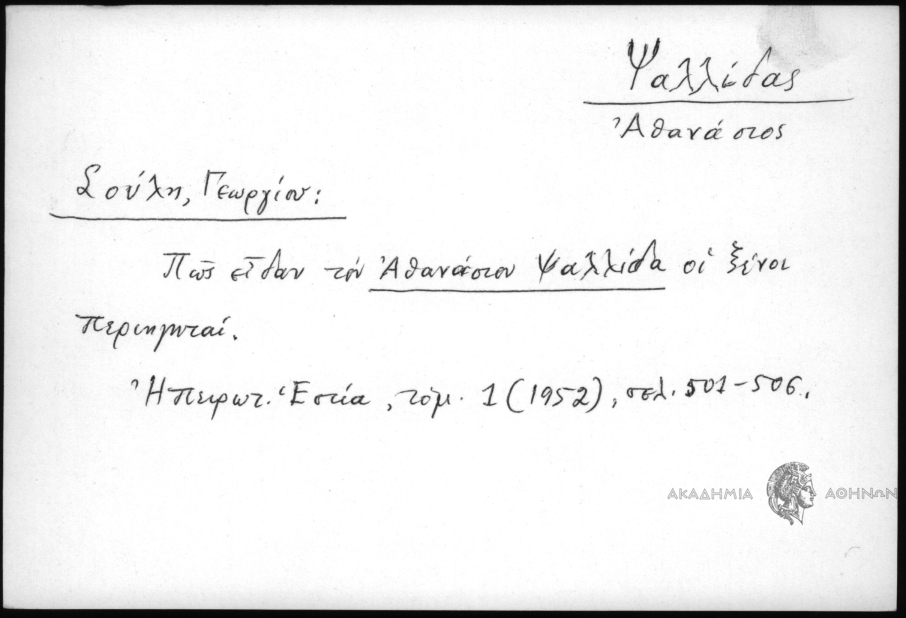 Ψαλλίδας
Ἀθανάσιος
Σούλη, Γεωργίου:
Πῶς εἶδαν τόν Ἀθανάσιον Ψαλλίδα οἱ ξένοι
περιηγηταί.
Ἠπειρωτ. Ἑστία, τόμ. 1 (1952), σελ. 501-506.
ΑΚΑΔΗΜΙΑ ΑΘΗΝΩΝ